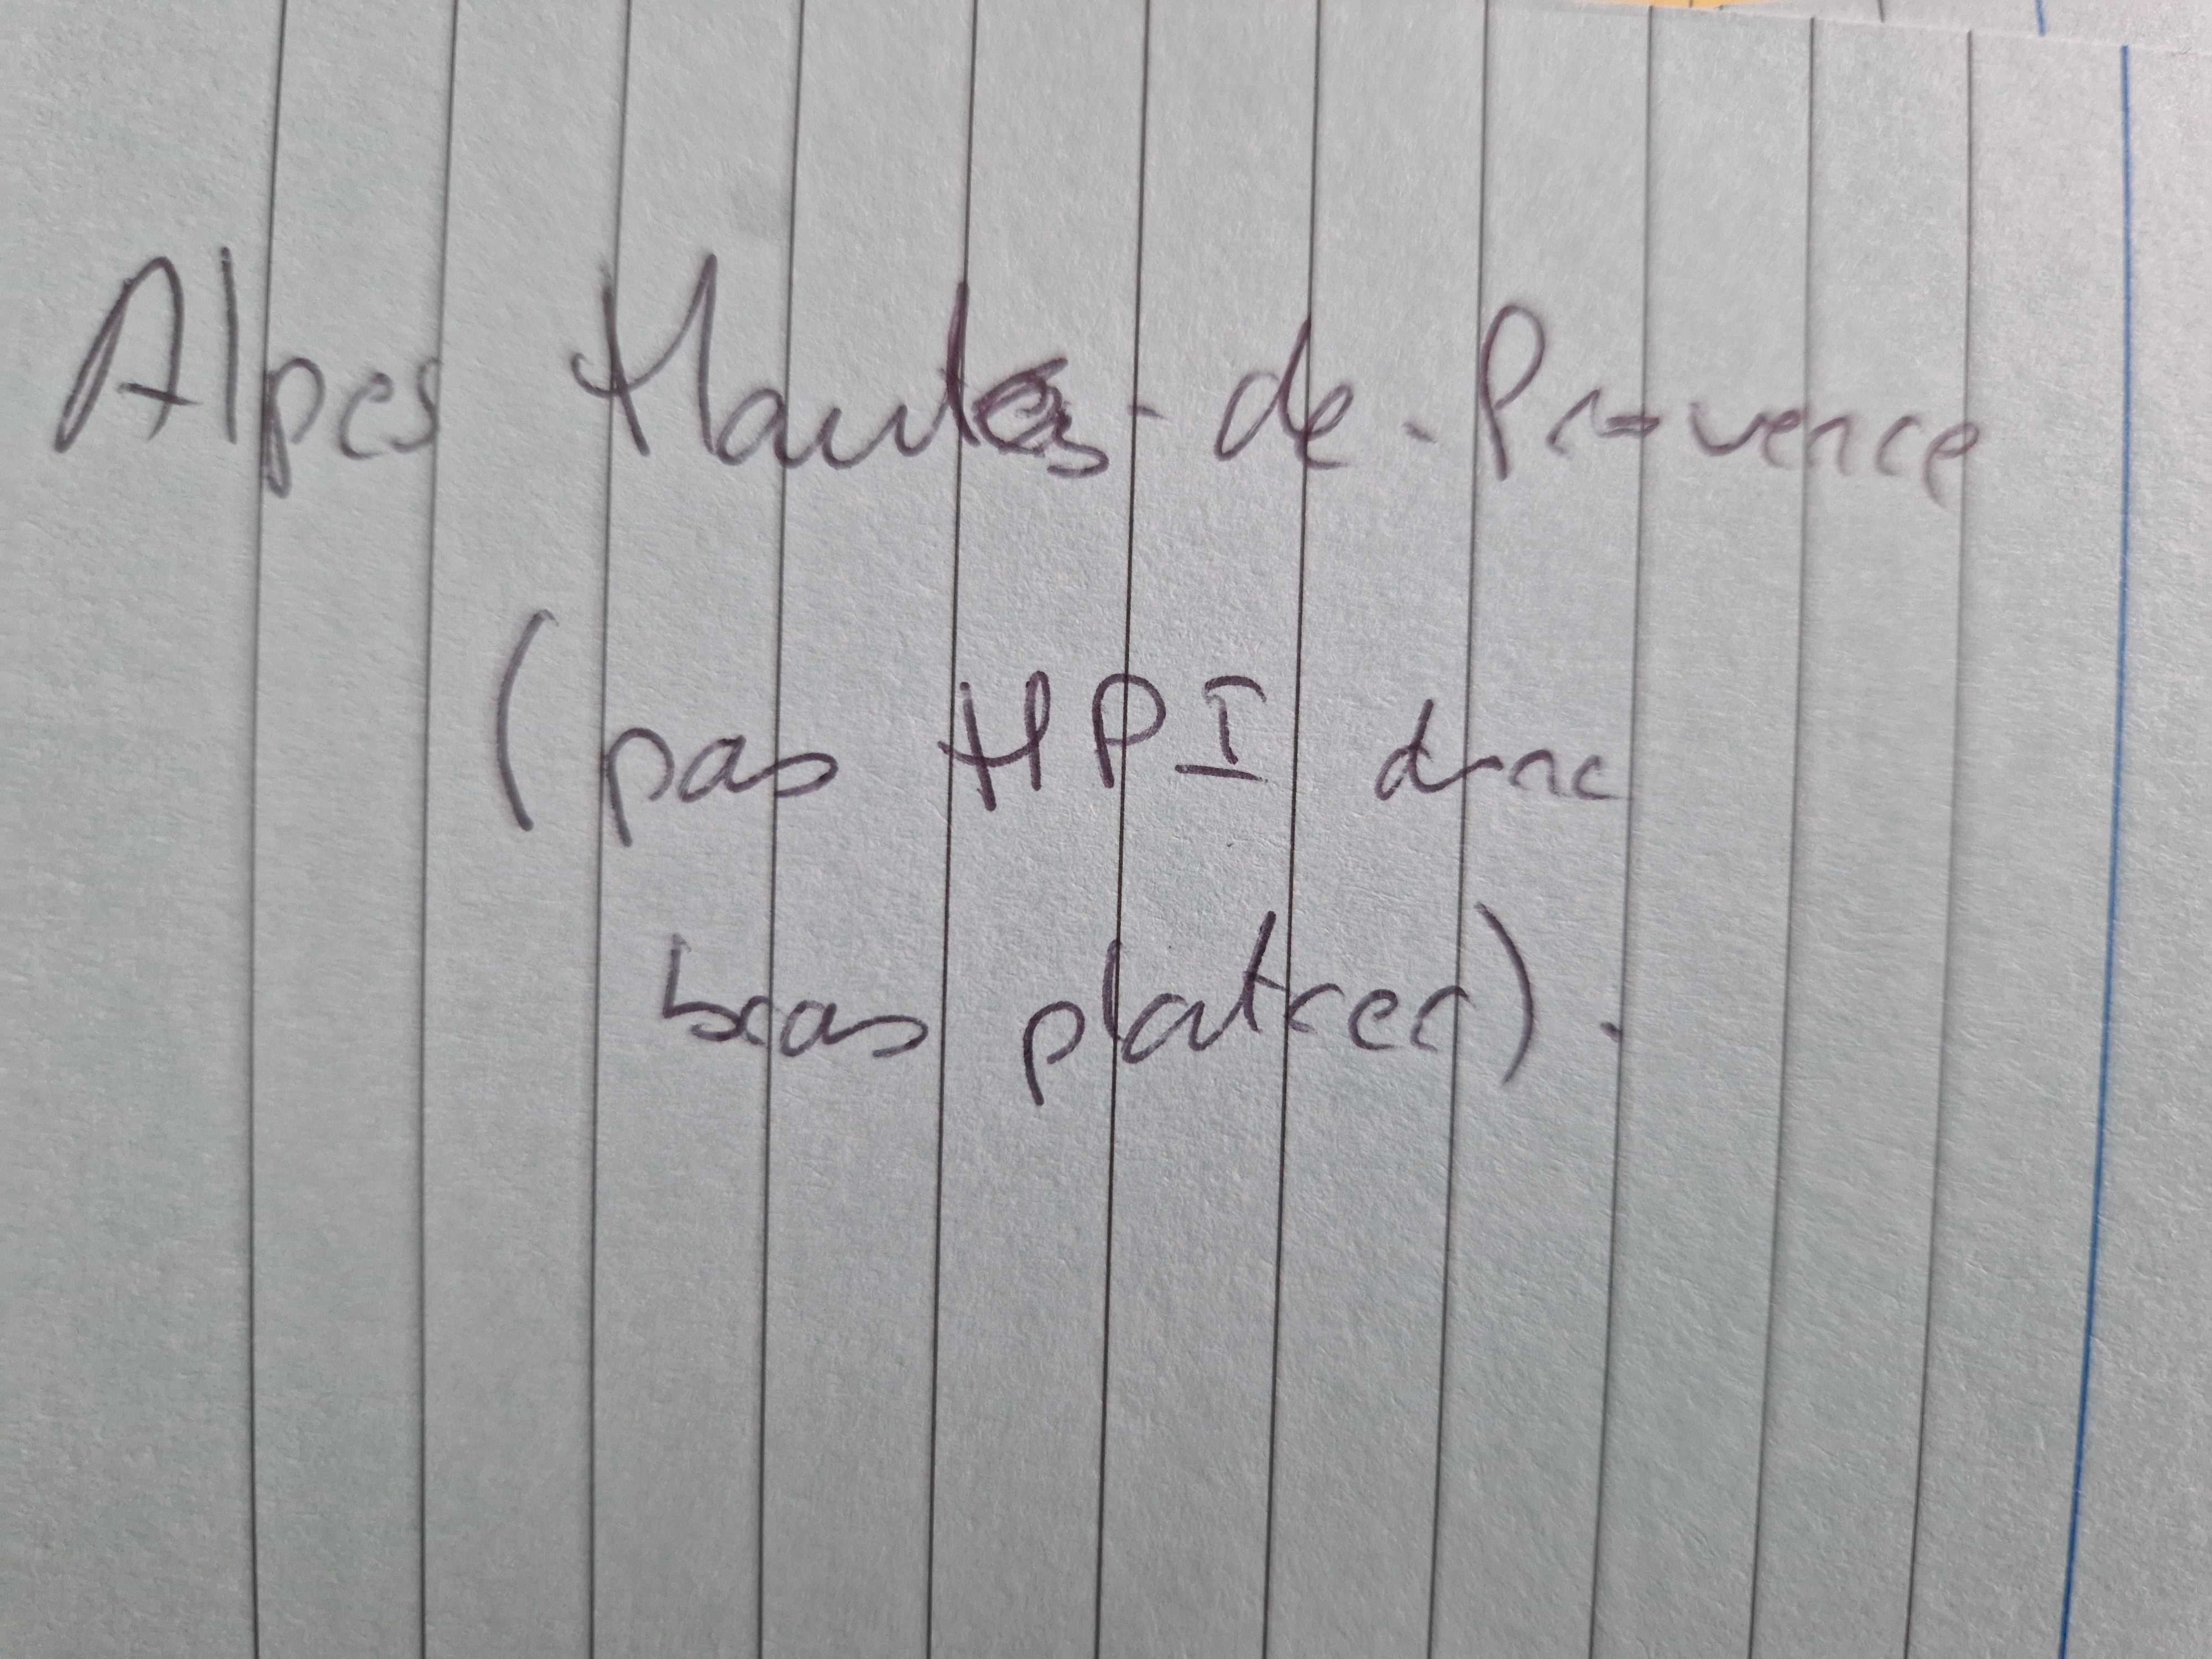 Alpes Hautes-de-Provence
(pas HPI donc
bras platrer).